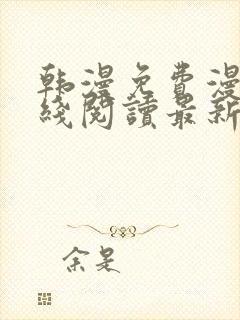 韩漫免费漫
线阅读最新
余是